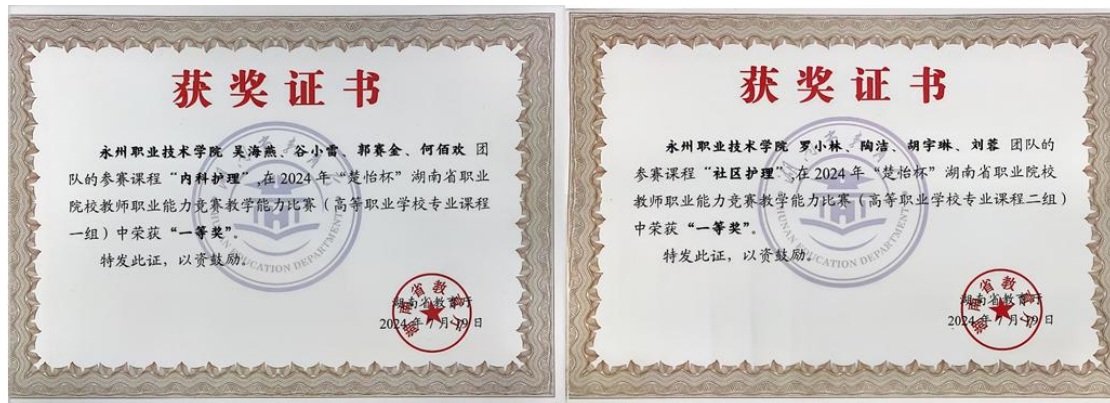 获奖证书
永州职业技术学院 吴海燕、谷小雷、郭赛金、何佰欢 团
队的参赛课程“内科护理”,在2024年“楚怡杯”湖南省职业
院校教师职业能力竞赛教学能力比赛（高等职业学校专业课程
一组）中荣获“一等奖”。
特发此证，以资鼓励。
HUNAN EDUCATION DEPARTMENT
湖南省教育厅
2024年7月19日
获奖证书
永州职业技术学院 罗小林、陶洁、胡宇琳、刘蓉 团队的
参赛课程“社区护理”,在2024年“楚怡杯”湖南省职业院校
教师职业能力竞赛教学能力比赛（高等职业学校专业课程二组）
中荣获“一等奖”。
特发此证，以资鼓励。
HUNAN EDUCATION DEPARTMENT
湖南省教育厅
2024年7月19日